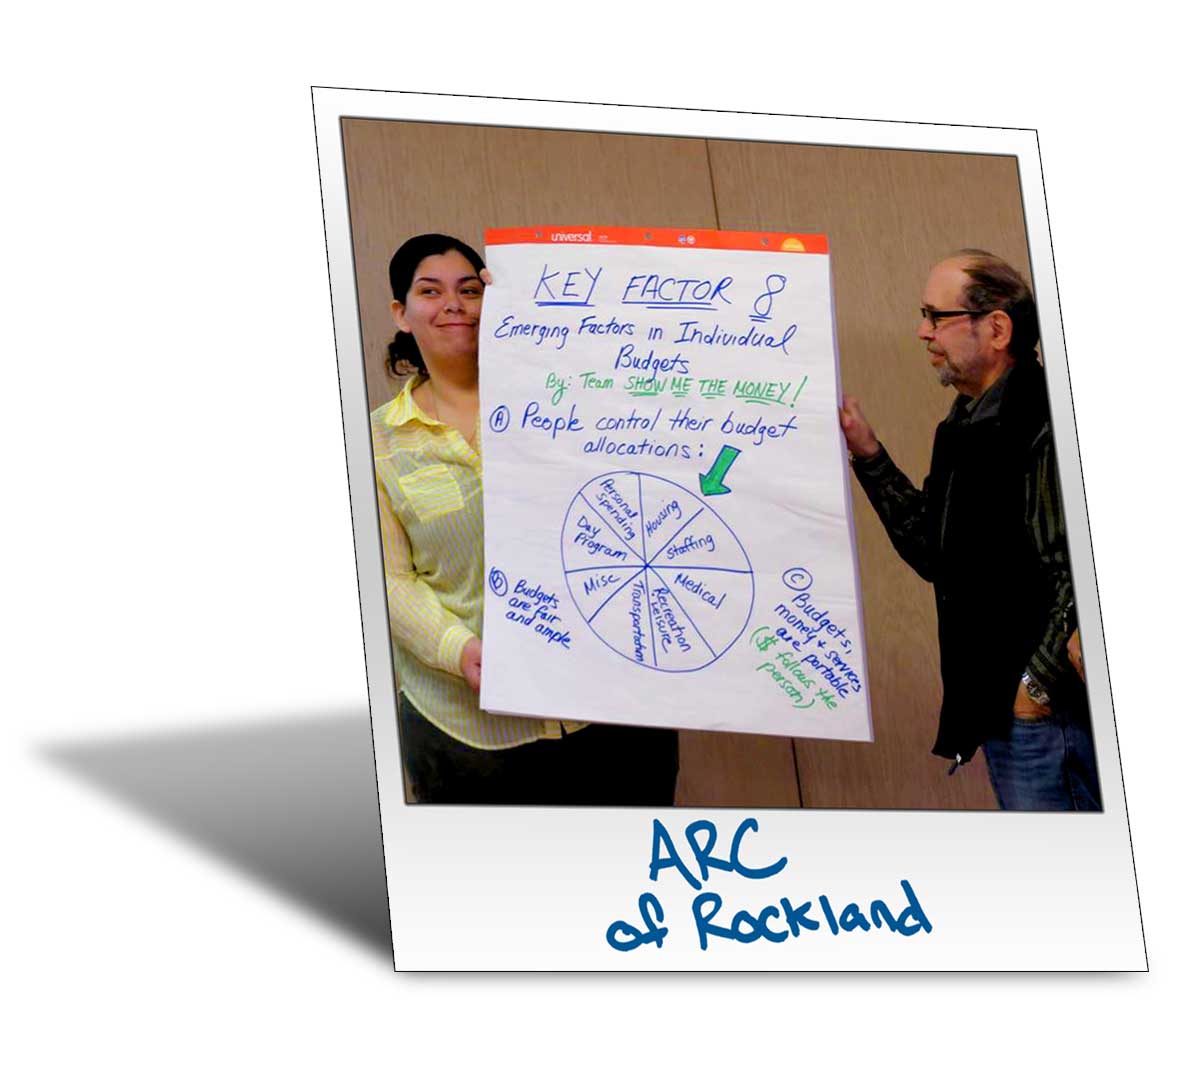 universal
KEY FACTOR 8
Emerging Factors in Individual
Budgets
By: Team SHOW ME THE MONEY!
A People control their budget
allocations:
Personal
Spending
Housing
Staffing
Medical
Recreation
Leisure
Transportation
Misc
Day
Program
B Budgets
are fair
and ample
C Budgets,
money + services
are portable
($ follows the
person)
ARC
of Rockland